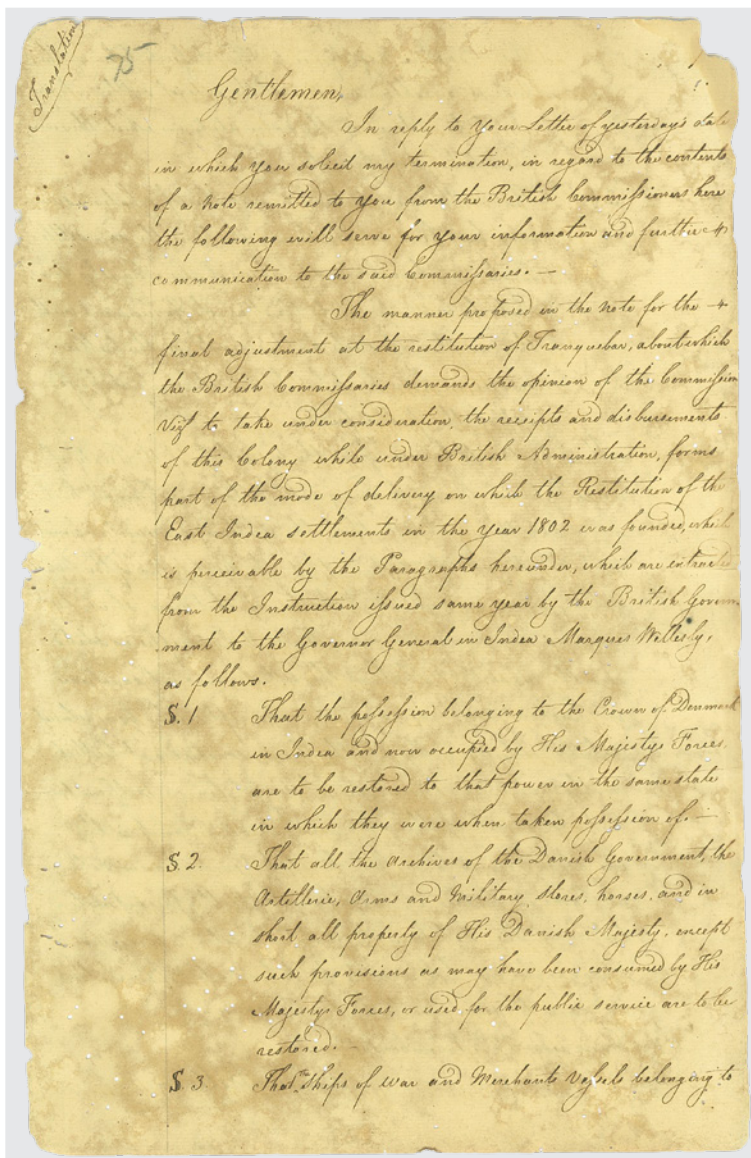 Translation
75
Gentlemen,
In reply to your Letter of yesterday's date
in which you solicit my termination, in regard to the contents
of a Note remitted to you from the British Commissioners here
the following will serve for your information and further
communication to the said Commissaries. —
The manner proposed in the Note for the
final adjustment at the restitution of Tranquebar, about which
the British Commissaries demands the opinion of the Commission
Vizt to take under consideration, the receipts and disbursements
of this Colony while under British Administration, forms
part of the mode of delivery on which the Restitution of the
East Indea settlements in the year 1802 was founded, which
is perceivable by the Paragraphs hereunder, which are
from the Instruction issued same year by the British Govern-
ment to the Governor General in Indea Marques Wellesly,
as follows.
S. 1 That the possession belonging to the Crown of Denmark
in Indea and now occupied by His Majestys Forces
are to be restored to that power in the same state
in which they were when taken possession of. —
S. 2. That all the Archives of the Danish Government, the
Artillerie, Arms and Military Stores, horses, and in
short all property of His Danish Majesty, except
such provisions as may have been consumed by His
Majestys Forces, or used for the public service are to be
restored. —
S. 3. That Ships of War and Merchants Vessels belonging to